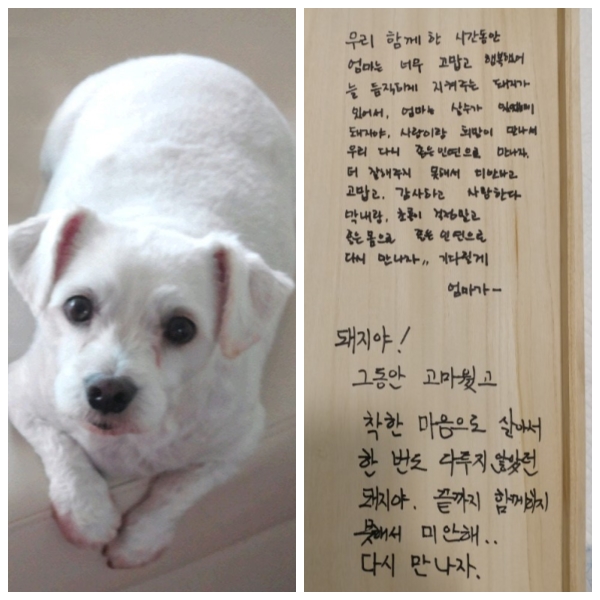 우리 함께 한 시간동안
엄마는 너무 고맙고 행복했어
늘 듬직하게 지켜주는 돼지가
있어서, 엄마는 살수가
돼지야, 사랑이랑 만나서
우리 다시 좋은인연으로 만나자.
더 잘해주지 못해서 미안하고
고맙고, 감사하고 사랑한다
막내랑, 초롱이 걱정말고
좋은몸으로 좋은 인연으로
다시 만나자,, 기다릴게
엄마가-
돼지야!
그동안 고마웠고
착한 마음으로 살아서
한 번도 다투지 않았던
돼지야. 끝까지 함께하지
못해서 미안해..
다시 만나자.